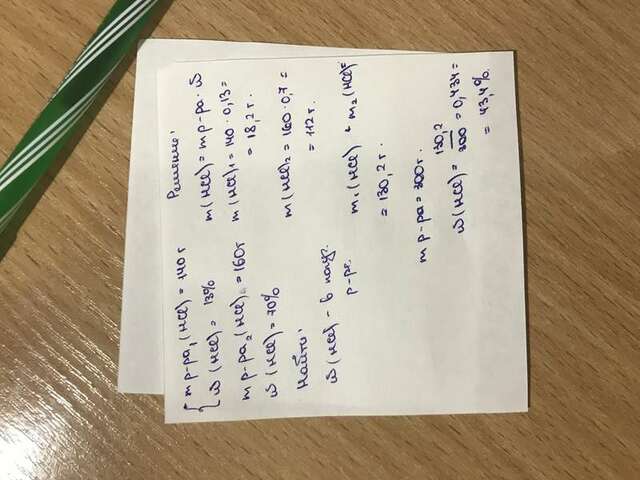 m р-ра₁ (HCl) = 140 г
ω (HCl) = 13%
m р-ра₂ (HCl) = 160г
ω (HCl) = 70%
Найти:
ω (HCl) - в получ.
р-ре.
Решение:
m(HCl) = m р-ра · ω
m(HCl)₁ = 140 · 0,13 =
= 18,2 г.
m(HCl)₂ = 160 · 0,7 =
= 112 г.
m₁(HCl) + m₂(HCl) =
= 130,2 г.
m р-ра = 300 г.
ω(HCl) = 130,2/300 = 0,434 =
= 43,4%